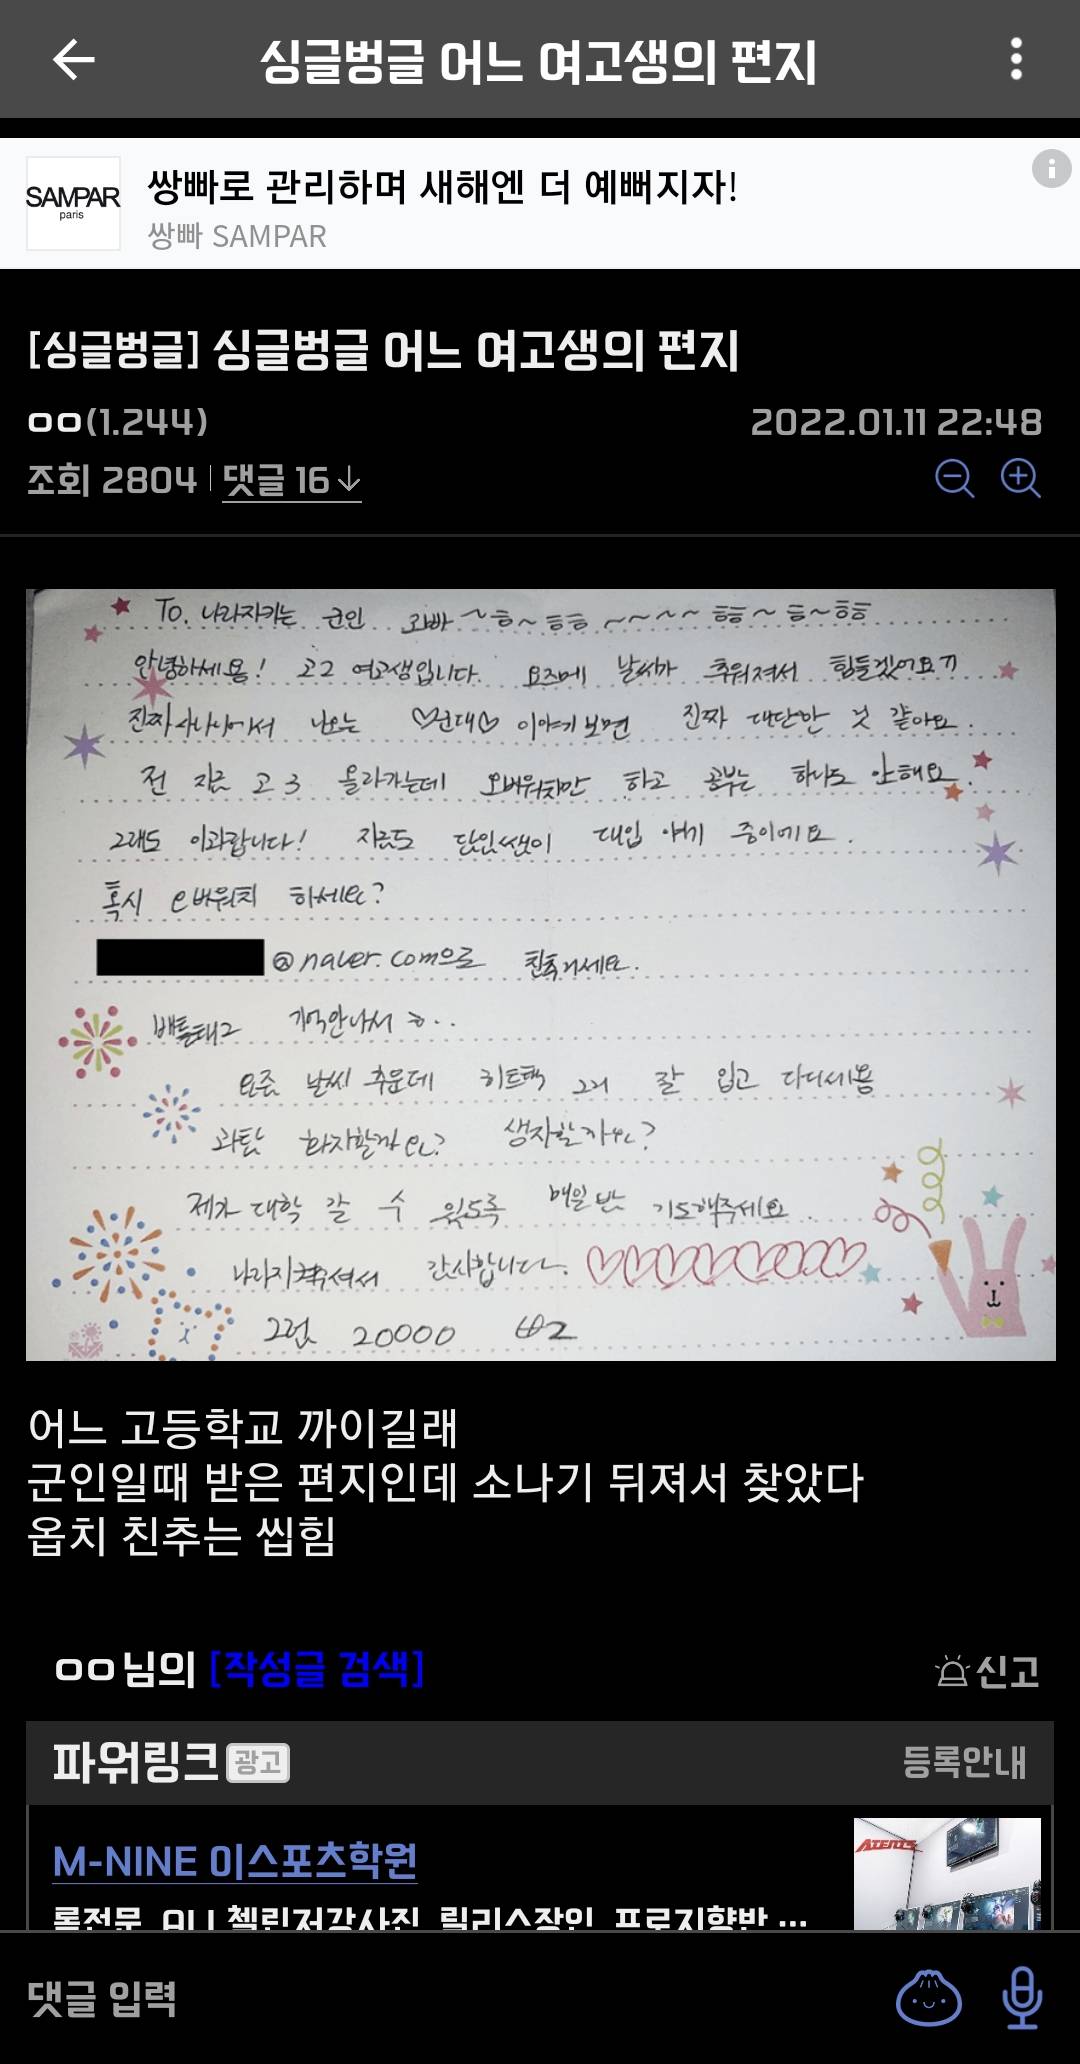 싱글벙글 어느 여고생의 편지
SAMPAR
paris
쌍빠로 관리하며 새해엔 더 예뻐지자!
쌍빠 SAMPAR
[싱글벙글] 싱글벙글 어느 여고생의 편지
ㅇㅇ(1.244) 2022.01.11 22:48
조회 2804 댓글 16↓
To. 나라지키는 군인 오빠~흥~흥흥~~~~흥흥~흥~흥흥
안녕하세용! 고2 여고생입니다. 요즈메 날씨가 추워져서 힘들겠어요ㄲ
진짜 사나이에서 나오는 ♡군대♡ 이야기 보면 진짜 대단한 것 같아요.
전 지금 고3 올라가는데 오버워치만 하고 공부는 하나도 안해요.
그래도 이과랍니다! 지금도 담임쌤이 대입 얘기 중이에요.
혹시 오버워치 하세요?
@naver.com으로 친추거세요.
배틀태그 기억안나서
요즘 날씨 추운데 히트텍 그거 잘 입고 다니세용
과탐 화자할까요? 생자할까요?
제가 대학 갈 수 있도록 매일밤 기도해주세요.
나라지켜주셔서 감사합니다. ♡♡♡♡♡♡♡♡
그럼 20000
어느 고등학교 까이길래
군인일때 받은 편지인데 소나기 뒤져서 찾았다
옵치 친추는 씹힘
ㅇㅇ님의 [작성글 검색] 신고
파워링크 광고 등록안내
M-NINE 이스포츠학원
롤전문, ALL챌린저강사진, 릴리스장인, 프로지향반 …
댓글 입력